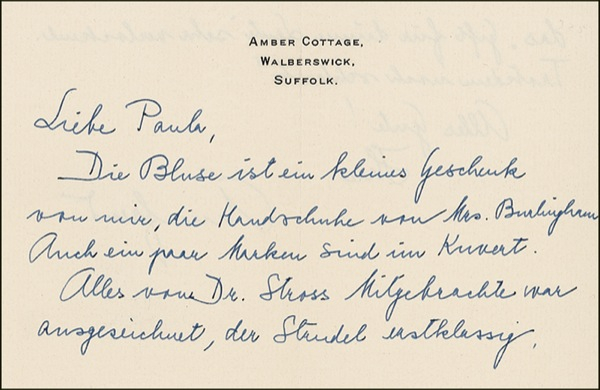 AMBER COTTAGE,
WALBERSWICK,
SUFFOLK.
Liebe Paula,
Die Bluse ist ein kleines Geschenk
von mir, die Handschuhe von Mrs. Burlingham
Auch ein paar Marken sind im Kuvert.
Alles vom Dr. Stross Mitgebrachte war
ausgezeichnet, der Strudel erstklassig.